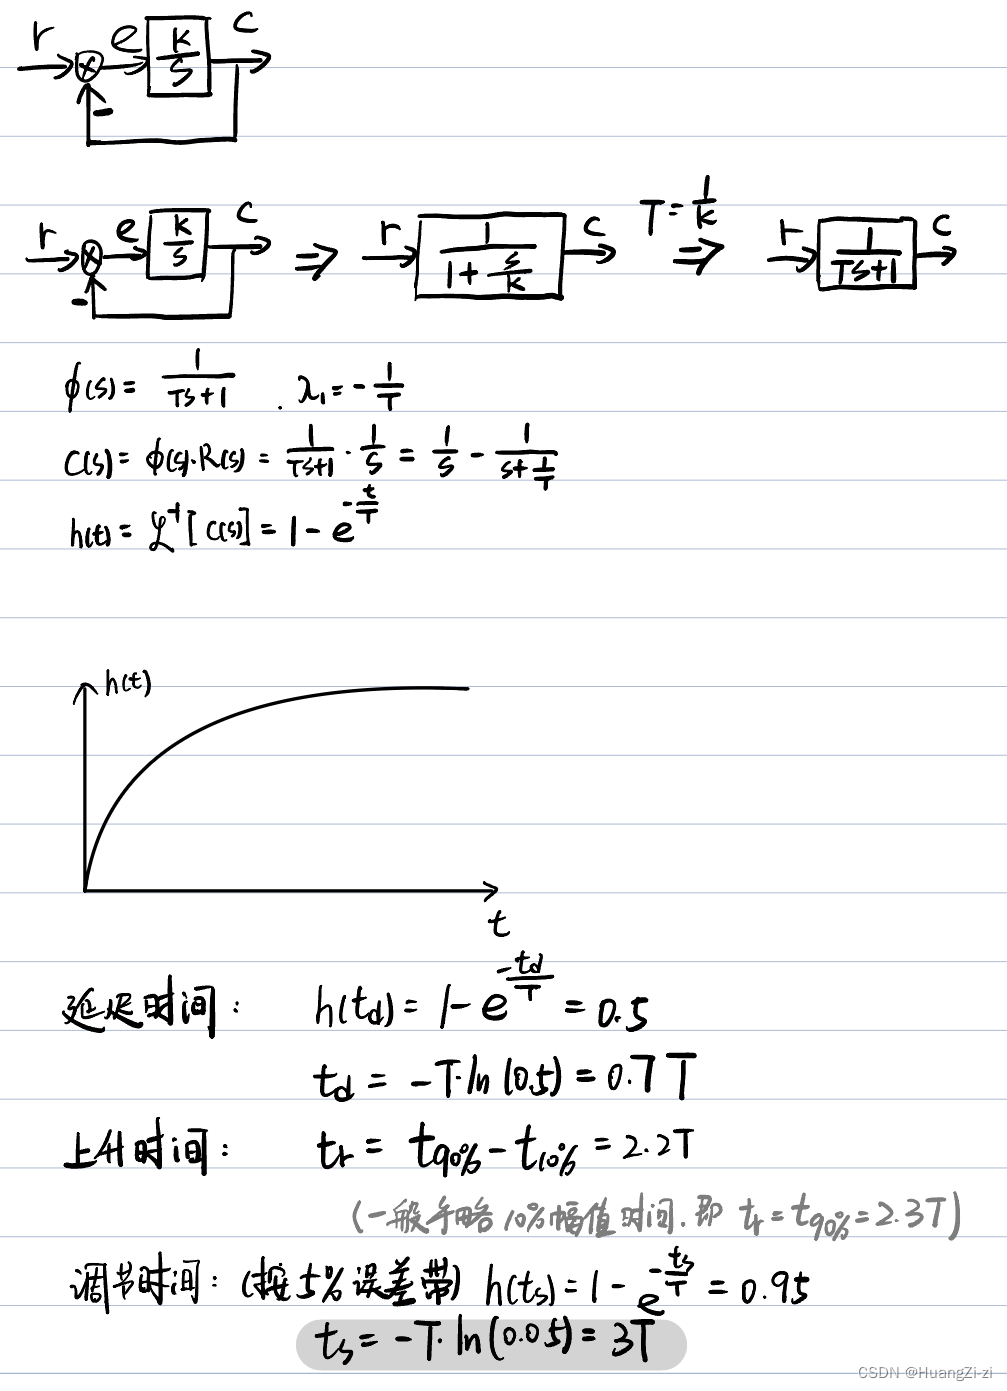 r e K/S c
-
r e K/S c ⇒ r 1/(1+S/K) c T=1/K ⇒ r 1/(TS+1) c
-
ϕ(s)= 1/(TS+1) . λ₁=-1/T
C(s)= ϕ(s)·R(s) = 1/(TS+1) · 1/S = 1/S - 1/(S+1/T)
h(t)= ℒ⁻¹[C(s)] = 1 - e^(-t/T)
h(t)
t
延迟时间: h(td)= 1-e^(-td/T) = 0.5
td = -T·ln(0.5) = 0.7T
上升时间: tr = t90% - t10% = 2.2T
(一般忽略10%幅值时间.即 tr=t90%=2.3T)
调节时间: (按5%误差带) h(ts)=1-e^(-ts/T) = 0.95
ts = -T·ln(0.05) = 3T
CSDN @HuangZi-zi